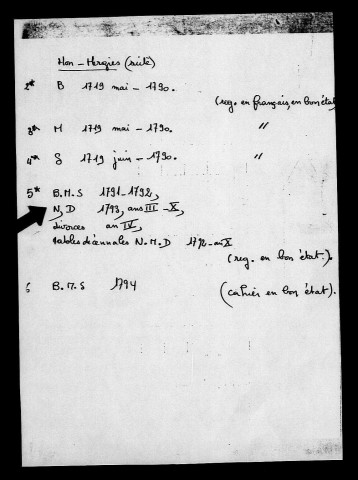 Hon-Hergies (suite)
2* B 1719 mai - 1790.
(reg. en français, en bon état
3* M 1719 mai - 1790. "
4* S 1719 juin - 1790. "
5* B.M.S 1791-1792,
N, D 1793, ans III - X,
divorces an IV,
tables décennales N.M.D 1792-an X
(reg. en bon état.).
6 B.M.S 1794 (cahier en bon état).